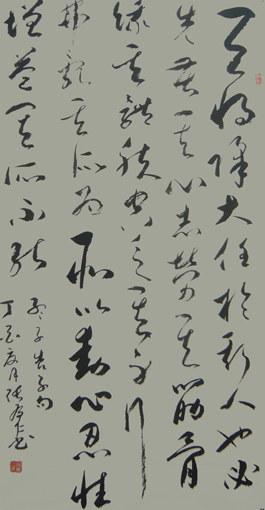 天將降大任於斯人也必
先苦其心志勞其筋骨
餓其體膚空乏其身行
拂亂其所为所以動心忍性
增益其所不能
孟子告子句
丁亥夏月